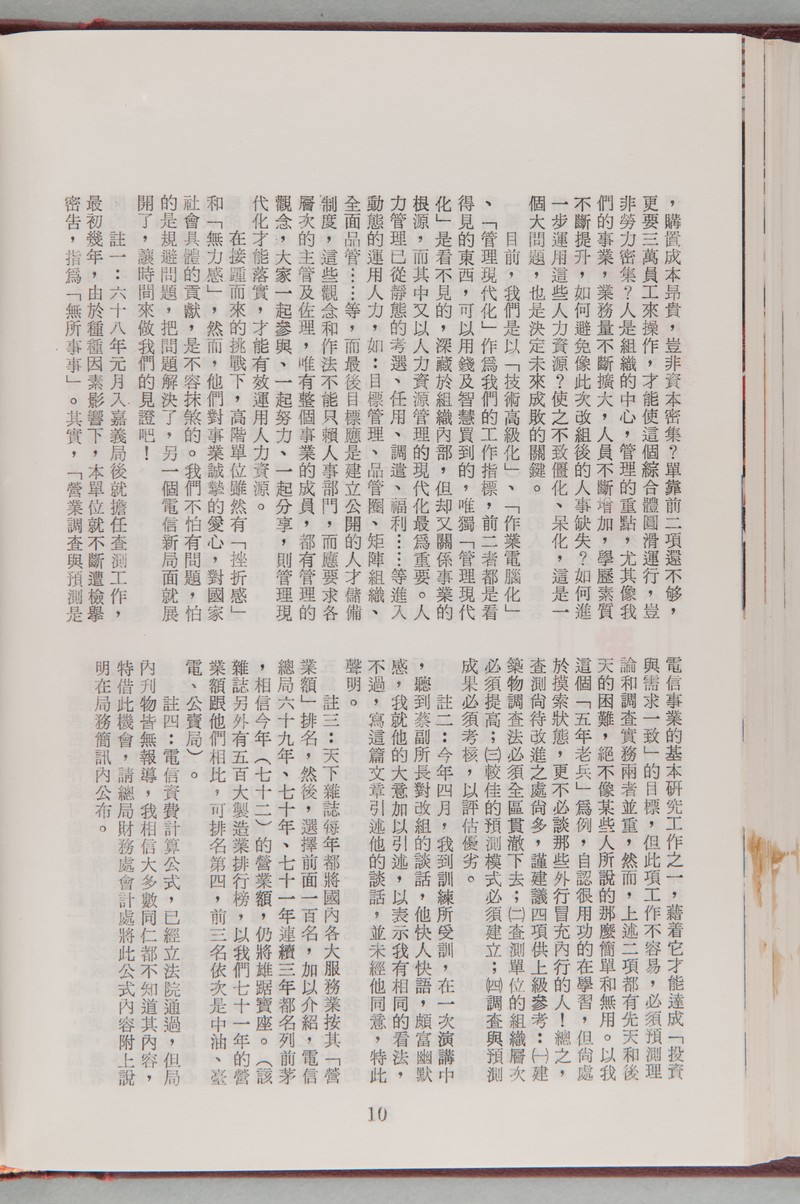 ，購置成本昂貴，豈非資本密集？單靠前二項還不够，
更要三萬員工來操作，才能使這個綜合體圓滑運行，豈
非勞力密集？人是組織的中心，管理的重點，尤其像我
們的事業，業務量不斷擴大，人員不斷增加，學歷素質
不斷提升，如何避免像此次改組後的人事缺失？如何進
一步運用這些人力資源？使之不致僵化、呆化，這是一
個大問題，也是決定未來成敗的關鍵。
目前，我們是以「技術高級化」、「作業電腦化」
、「管理現代化」作爲我們的工作指標，前二者都是看
得見的東西，可以用錢及智慧買到的，唯獨「管理現代
化」是看不見的，深藏於組織內部，但却又關係事業的
根源，而其中又以人力資源管理的現代化最爲重要。人
力管理已從靜態的考選、任用、調遣、福利……等進入
動態的運用人力，如：目標管理、品管圈、矩陣組織、
全面品管……等，而最後目標應是建立公開的人才儲備
制度，這些觀念和作法不能只賴人事部門，而應要求各
層次的主管及佐理，唯有整個事業的成員，都有管理的
觀念，大家一起參與、一起努力、一起分享，則管理現
代化才能落實，才能有效運用人力資源。
在接踵而來的挑戰下，高階單位雖然有「挫折感」
和「無力感」，然而，他們對事業誠摯的愛心，對國家
社會具體的貢獻，是不容抹煞的。我們不怕有問題，怕
的是規避問題，把問題解決了，另一個電信新局面就展
開了，讓時間來做我們的見證吧！
註一：六十八年元月入嘉義局後就擔任查測工作，
最初幾年，由於種種因素影響下，本單位就不斷遭檢舉
密告，指爲「無所事事」。其實，「營業調查與預測是
電信事業的基本研究工作之一，藉着它才能達成「投資
與需求一致」的目標，但此項工作不容易，必須預測理
論和調查實務兩者並重，然而，上述二項都有先天和後
天的困難，絕不像某些人所說的那麼簡單和無用。以我
這個「五年老兵」爲例，自認很用功的在學習，但尙處
於摸索狀態，更不必談那些外行冒充內行的人！總之，
查測尙待改進之處尙多，謹建議四項供上級參考：㈠建
築物調查法必須全區貫澈下去；㈡查測單位的組織層次
必須提高；㈢較佳的預測模式必須建立；㈣調查與預測
成果必須考核，以評估優劣。
註二：今年四月，我到訓練所受訓，在一次演講中
，聽到蔡副所長對改組的談話，他快人快語，頗富幽默
感，我就他的大意加以引述，以表示我有相同的看法，
不過，寫這篇文章引述他的談話，並未經他同意，特此
聲明。
註三：天下雜誌每年都將國內各大服務業按其「營
業額」排名，然後，選擇前面一百名，加以介紹，電信
總局六十九年、七十年、七十一年連續三年都名列前茅
，相信今年（七十二）的營業額，仍將雄踞寶座。（該
雜誌另外有五百大製造業排行榜，以我們七十一年的營
業額跟他們相比，可排名第四，前三名依次是中油、臺
電、公賣局）。
註四：電信資費計算公式，已經立法院通過，但局
內刊物皆無報導，我相信大多數同仁都不知道其內容，
特借此機會，請總局財務處會計處將此公式內容附上說
明在局務簡訊內公布。
10